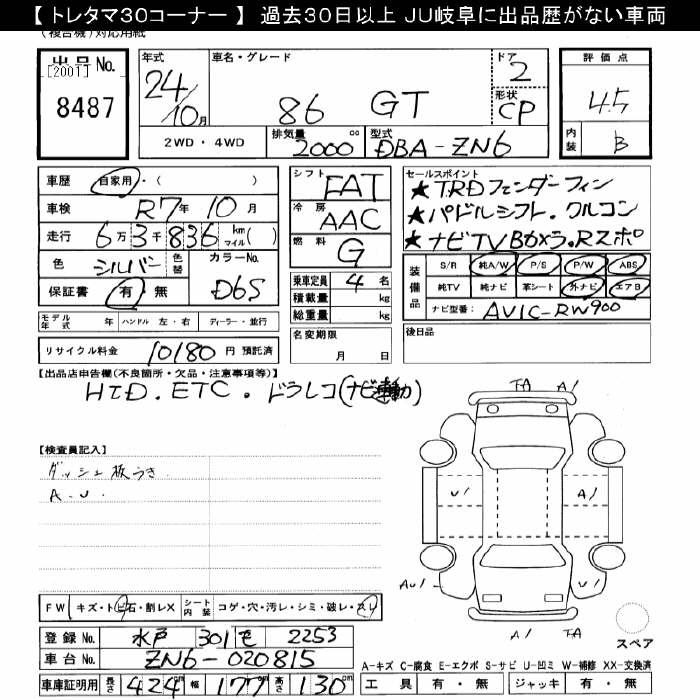 【 トレタマ30コーナー 】 過去30日以上 JU岐阜に出品歴がない車両
(複合機)対応用紙
出品No.
[2001]
8487
年式 24/10月
車名・グレード 86 GT
ドア 2
形状 CP
2WD・4WD
排気量 2000 cc
型式 DBA-ZN6
評価点
4.5
内装 B
車歴 自家用・( )
車検 R7年10月
走行 6万3千836 km マイル( )
色 シルバー 色替 カラーNo.
D6S
保証書 有・無
モデル年式 年 ハンドル 左・右 ディーラー・並行
リサイクル料金 10180 円 預託済
シフト FAT
冷房 AAC
燃料 G
乗車定員 4 名
積載量 kg
総重量 kg
名変期限
月 日
セールスポイント
★TRDフェンダーフィン
★パドルシフト.クルコン
★ナビTVBカメラ.Rスポ
装備品
S/R 純A/W P/S P/W ABS
純TV 純ナビ 革シート 外ナビ エアB
ナビ型番: AVIC-RW900
後日品
【出品店申告欄(不良箇所・欠品・注意事項等)】
HID.ETC.ドラレコ(ナビ連動)
【検査員記入】
ダッシュ板うき
A.U.
TA A1
U1 A1
AU1 U1
A1 TA
スペア
FW キズ・トビ石・割レX シート内装 コゲ・穴・汚レ・シミ・破レ・スレ
登録No. 水戸 301 モ 2253
車台No. ZN6-020815
車庫証明用 長さ 424cm 幅 177cm 高さ 130cm
A-キズ C-腐食 E-エクボ S-サビ U-凹ミ W-補修 XX-交換済
工具 有・無 ジャッキ 有・無